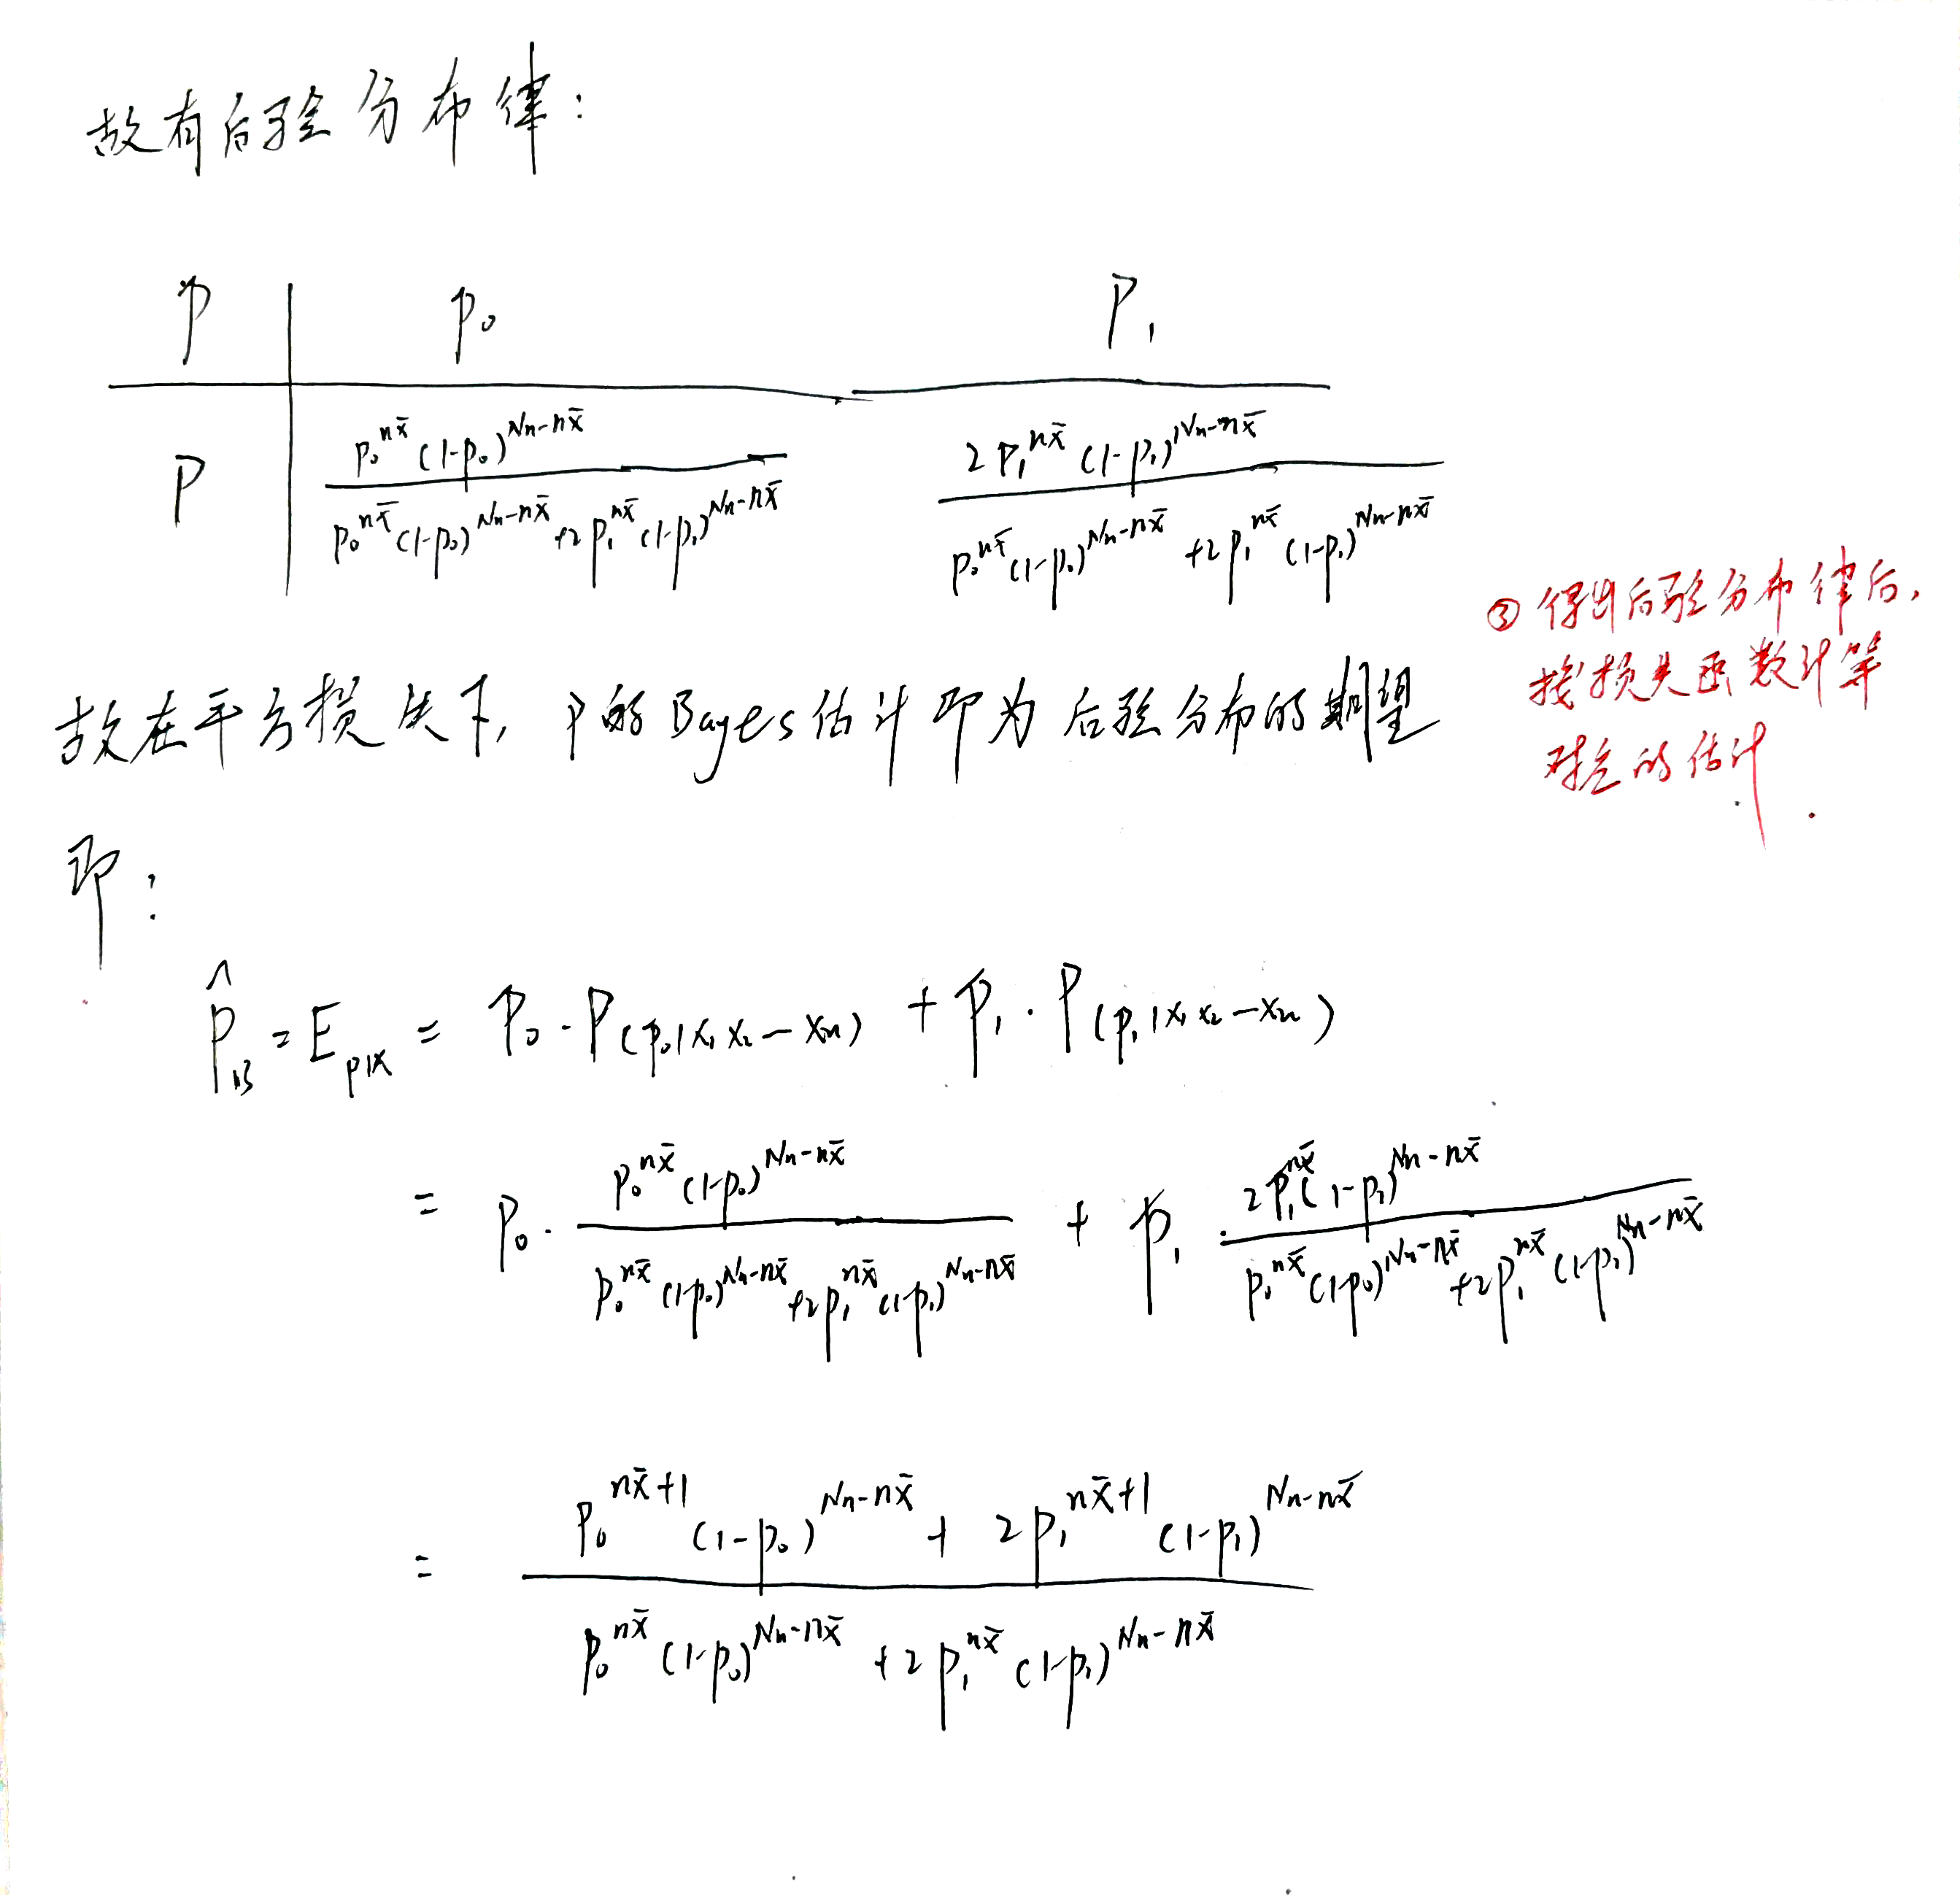 故有后验分布律:
p p₀ p₁
P \frac{p_0^{n\bar{x}}(1-p_0)^{Nn-n\bar{x}}}{p_0^{n\bar{x}}(1-p_0)^{Nn-n\bar{x}}+2p_1^{n\bar{x}}(1-p_1)^{Nn-n\bar{x}}} \frac{2p_1^{n\bar{x}}(1-p_1)^{Nn-n\bar{x}}}{p_0^{n\bar{x}}(1-p_0)^{Nn-n\bar{x}}+2p_1^{n\bar{x}}(1-p_1)^{Nn-n\bar{x}}}
得出后验分布律后,
按损失函数计算
对应的估计.
故在平方损失下, p的Bayes估计即为后验分布的期望
即:
\hat{p}_B = E_{p|x} = p_0·P(p_0|x_1 x_2—x_n) + p_1·P(p_1|x_1 x_2—x_n)
= p_0·\frac{p_0^{n\bar{x}}(1-p_0)^{Nn-n\bar{x}}}{p_0^{n\bar{x}}(1-p_0)^{Nn-n\bar{x}}+2p_1^{n\bar{x}}(1-p_1)^{Nn-n\bar{x}}} + p_1·\frac{2p_1^{n\bar{x}}(1-p_1)^{Nn-n\bar{x}}}{p_0^{n\bar{x}}(1-p_0)^{Nn-n\bar{x}}+2p_1^{n\bar{x}}(1-p_1)^{Nn-n\bar{x}}}
= \frac{p_0^{n\bar{x}+1}(1-p_0)^{Nn-n\bar{x}}+2p_1^{n\bar{x}+1}(1-p_1)^{Nn-n\bar{x}}}{p_0^{n\bar{x}}(1-p_0)^{Nn-n\bar{x}}+2p_1^{n\bar{x}}(1-p_1)^{Nn-n\bar{x}}}